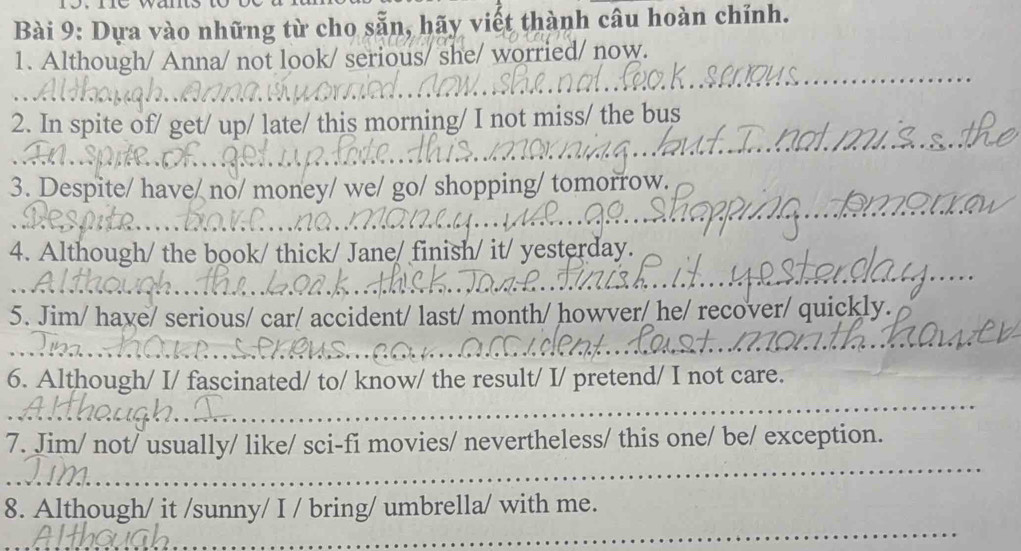 Bài 9: Dựa vào những từ cho sẵn, hãy viết thành câu hoàn chỉnh.
1. Although/ Anna/ not look/ serious/ she/ worried/ now.
Although Anna is worried now she not look serious
2. In spite of/ get/ up/ late/ this morning/ I not miss/ the bus
In spite of get up late this morning but I not miss the
3. Despite/ have/ no/ money/ we/ go/ shopping/ tomorrow.
Despite have no money we go shopping tomorrow
4. Although/ the book/ thick/ Jane/ finish/ it/ yesterday.
Although the book thick Jane finish it yesterday
5. Jim/ have/ serious/ car/ accident/ last/ month/ howver/ he/ recover/ quickly.
Jim have sereus car accident last month hower
6. Although/ I/ fascinated/ to/ know/ the result/ I/ pretend/ I not care.
Although I
7. Jim/ not/ usually/ like/ sci-fi movies/ nevertheless/ this one/ be/ exception.
Jim
8. Although/ it /sunny/ I / bring/ umbrella/ with me.
Although